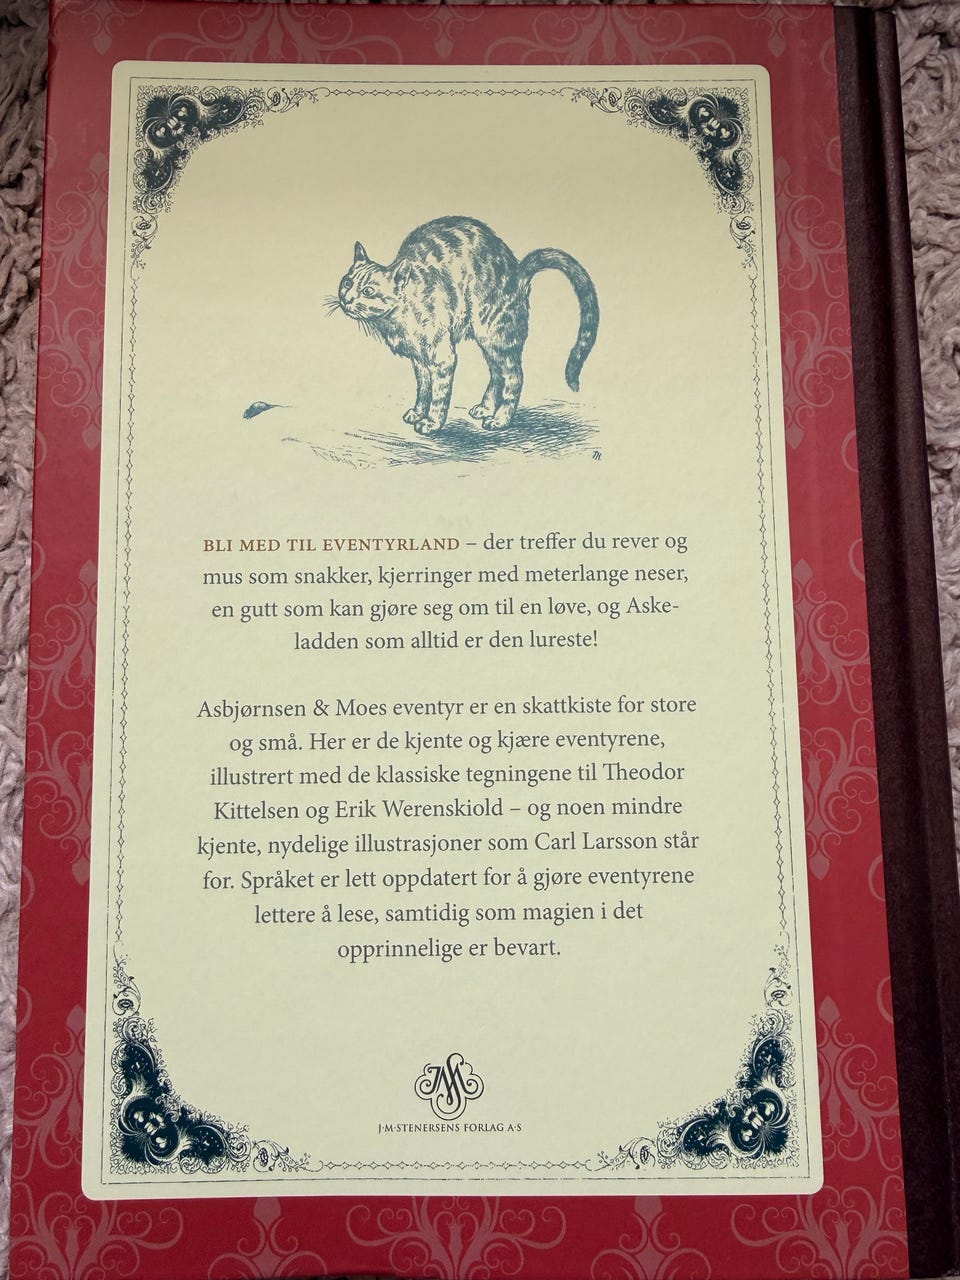 BLI MED TIL EVENTYRLAND – der treffer du rever og
mus som snakker, kjerringer med meterlange neser,
en gutt som kan gjøre seg om til en løve, og Aske-
ladden som alltid er den lureste!
Asbjørnsen & Moes eventyr er en skattkiste for store
og små. Her er de kjente og kjære eventyrene,
illustrert med de klassiske tegningene til Theodor
Kittelsen og Erik Werenskiold – og noen mindre
kjente, nydelige illustrasjoner som Carl Larsson står
for. Språket er lett oppdatert for å gjøre eventyrene
lettere å lese, samtidig som magien i det
opprinnelige er bevart.
J·M·STENERSENS FORLAG A·S